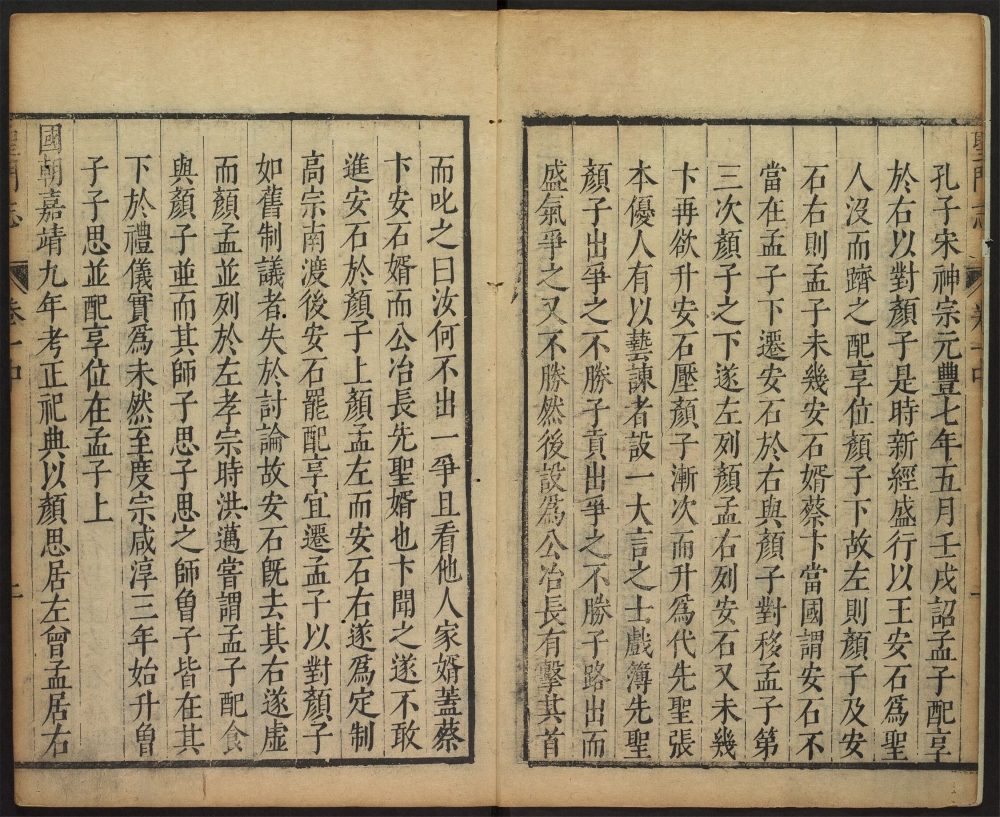 孔子宋神宗元豐七年五月壬戌詔孟子配享
於右以對顏子是時新經盛行以王安石爲聖
人沒而躋之配享位顏子下故左則顏子及安
石右則孟子未幾安石婿蔡卞當國謂安石不
當在孟子下遷安石於右與顏子對移孟子第
三次顏子之下遂左列顏孟右列安石又未幾
卞再欲升安石壓顏子漸次而升爲代先聖張
本優人有以藝諫者設一大言之士戲簿先聖
顏子出爭之不勝子貢出爭之不勝子路出而
盛氣爭之又不勝然後設爲公冶長有擊其首
而叱之曰汝何不出一爭且看他人家婿蓋蔡
卞安石婿而公冶長先聖婿也卞聞之遂不敢
進安石於顏子上顏孟左而安石右遂爲定制
高宗南渡後安石罷配享宜遷孟子以對顏子
如舊制議者失於討論故安石旣去其右遂虛
而顏孟並列於左孝宗時洪邁嘗謂孟子配食
與顏子並而其師子思子思之師曾子皆在其
下於禮儀實爲未然至度宗咸淳三年始升曾
子子思並配享位在孟子上
國朝嘉靖九年考正祀典以顏思居左曾孟居右
聖門志 卷一中